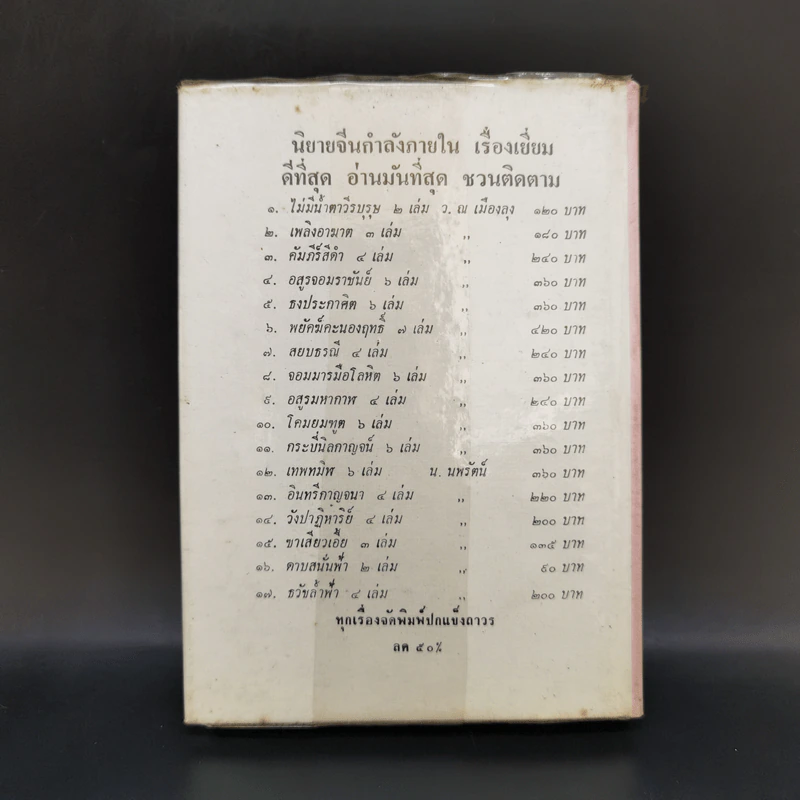 นิยายจีนกำลังภายใน เรื่องเยี่ยม
ดีที่สุด อ่านมันที่สุด ชวนติดตาม
๑. ไม่มีน้ำตาวีรบุรุษ ๒ เล่ม ว. ณ เมืองลุง ๑๒๐ บาท
๒. เพลิงอาฆาต ๓ เล่ม ,, ๑๘๐ บาท
๓. คัมภีร์สีดำ ๔ เล่ม ,, ๒๔๐ บาท
๔. อสูรจอมราชันย์ ๖ เล่ม ,, ๓๖๐ บาท
๕. ธงประกาศิต ๖ เล่ม ,, ๓๖๐ บาท
๖. พยัคฆ์คะนองฤทธิ์ ๗ เล่ม ,, ๔๒๐ บาท
๗. สยบธรณี ๔ เล่ม ,, ๒๔๐ บาท
๘. จอมมารมือโลหิต ๖ เล่ม ,, ๓๖๐ บาท
๙. อสูรมหากาฬ ๔ เล่ม ,, ๒๔๐ บาท
๑๐. โคมยมฑูต ๖ เล่ม ,, ๓๖๐ บาท
๑๑. กระบี่นิลกาญจน์ ๖ เล่ม ,, ๓๖๐ บาท
๑๒. เทพทมิฬ ๖ เล่ม น. นพรัตน์ ๓๖๐ บาท
๑๓. อินทรีกาญจนา ๔ เล่ม ,, ๒๒๐ บาท
๑๔. วังปาฏิหาริย์ ๔ เล่ม ,, ๒๐๐ บาท
๑๕. ขาเสียวเอี้ย ๓ เล่ม ,, ๑๓๕ บาท
๑๖. ดาบสนั่นฟ้า ๒ เล่ม ,, ๙๐ บาท
๑๗. ธวัชล้ำฟ้า ๔ เล่ม ,, ๒๐๐ บาท
ทุกเรื่องจัดพิมพ์ปกแข็งถาวร
ลด ๕๐%